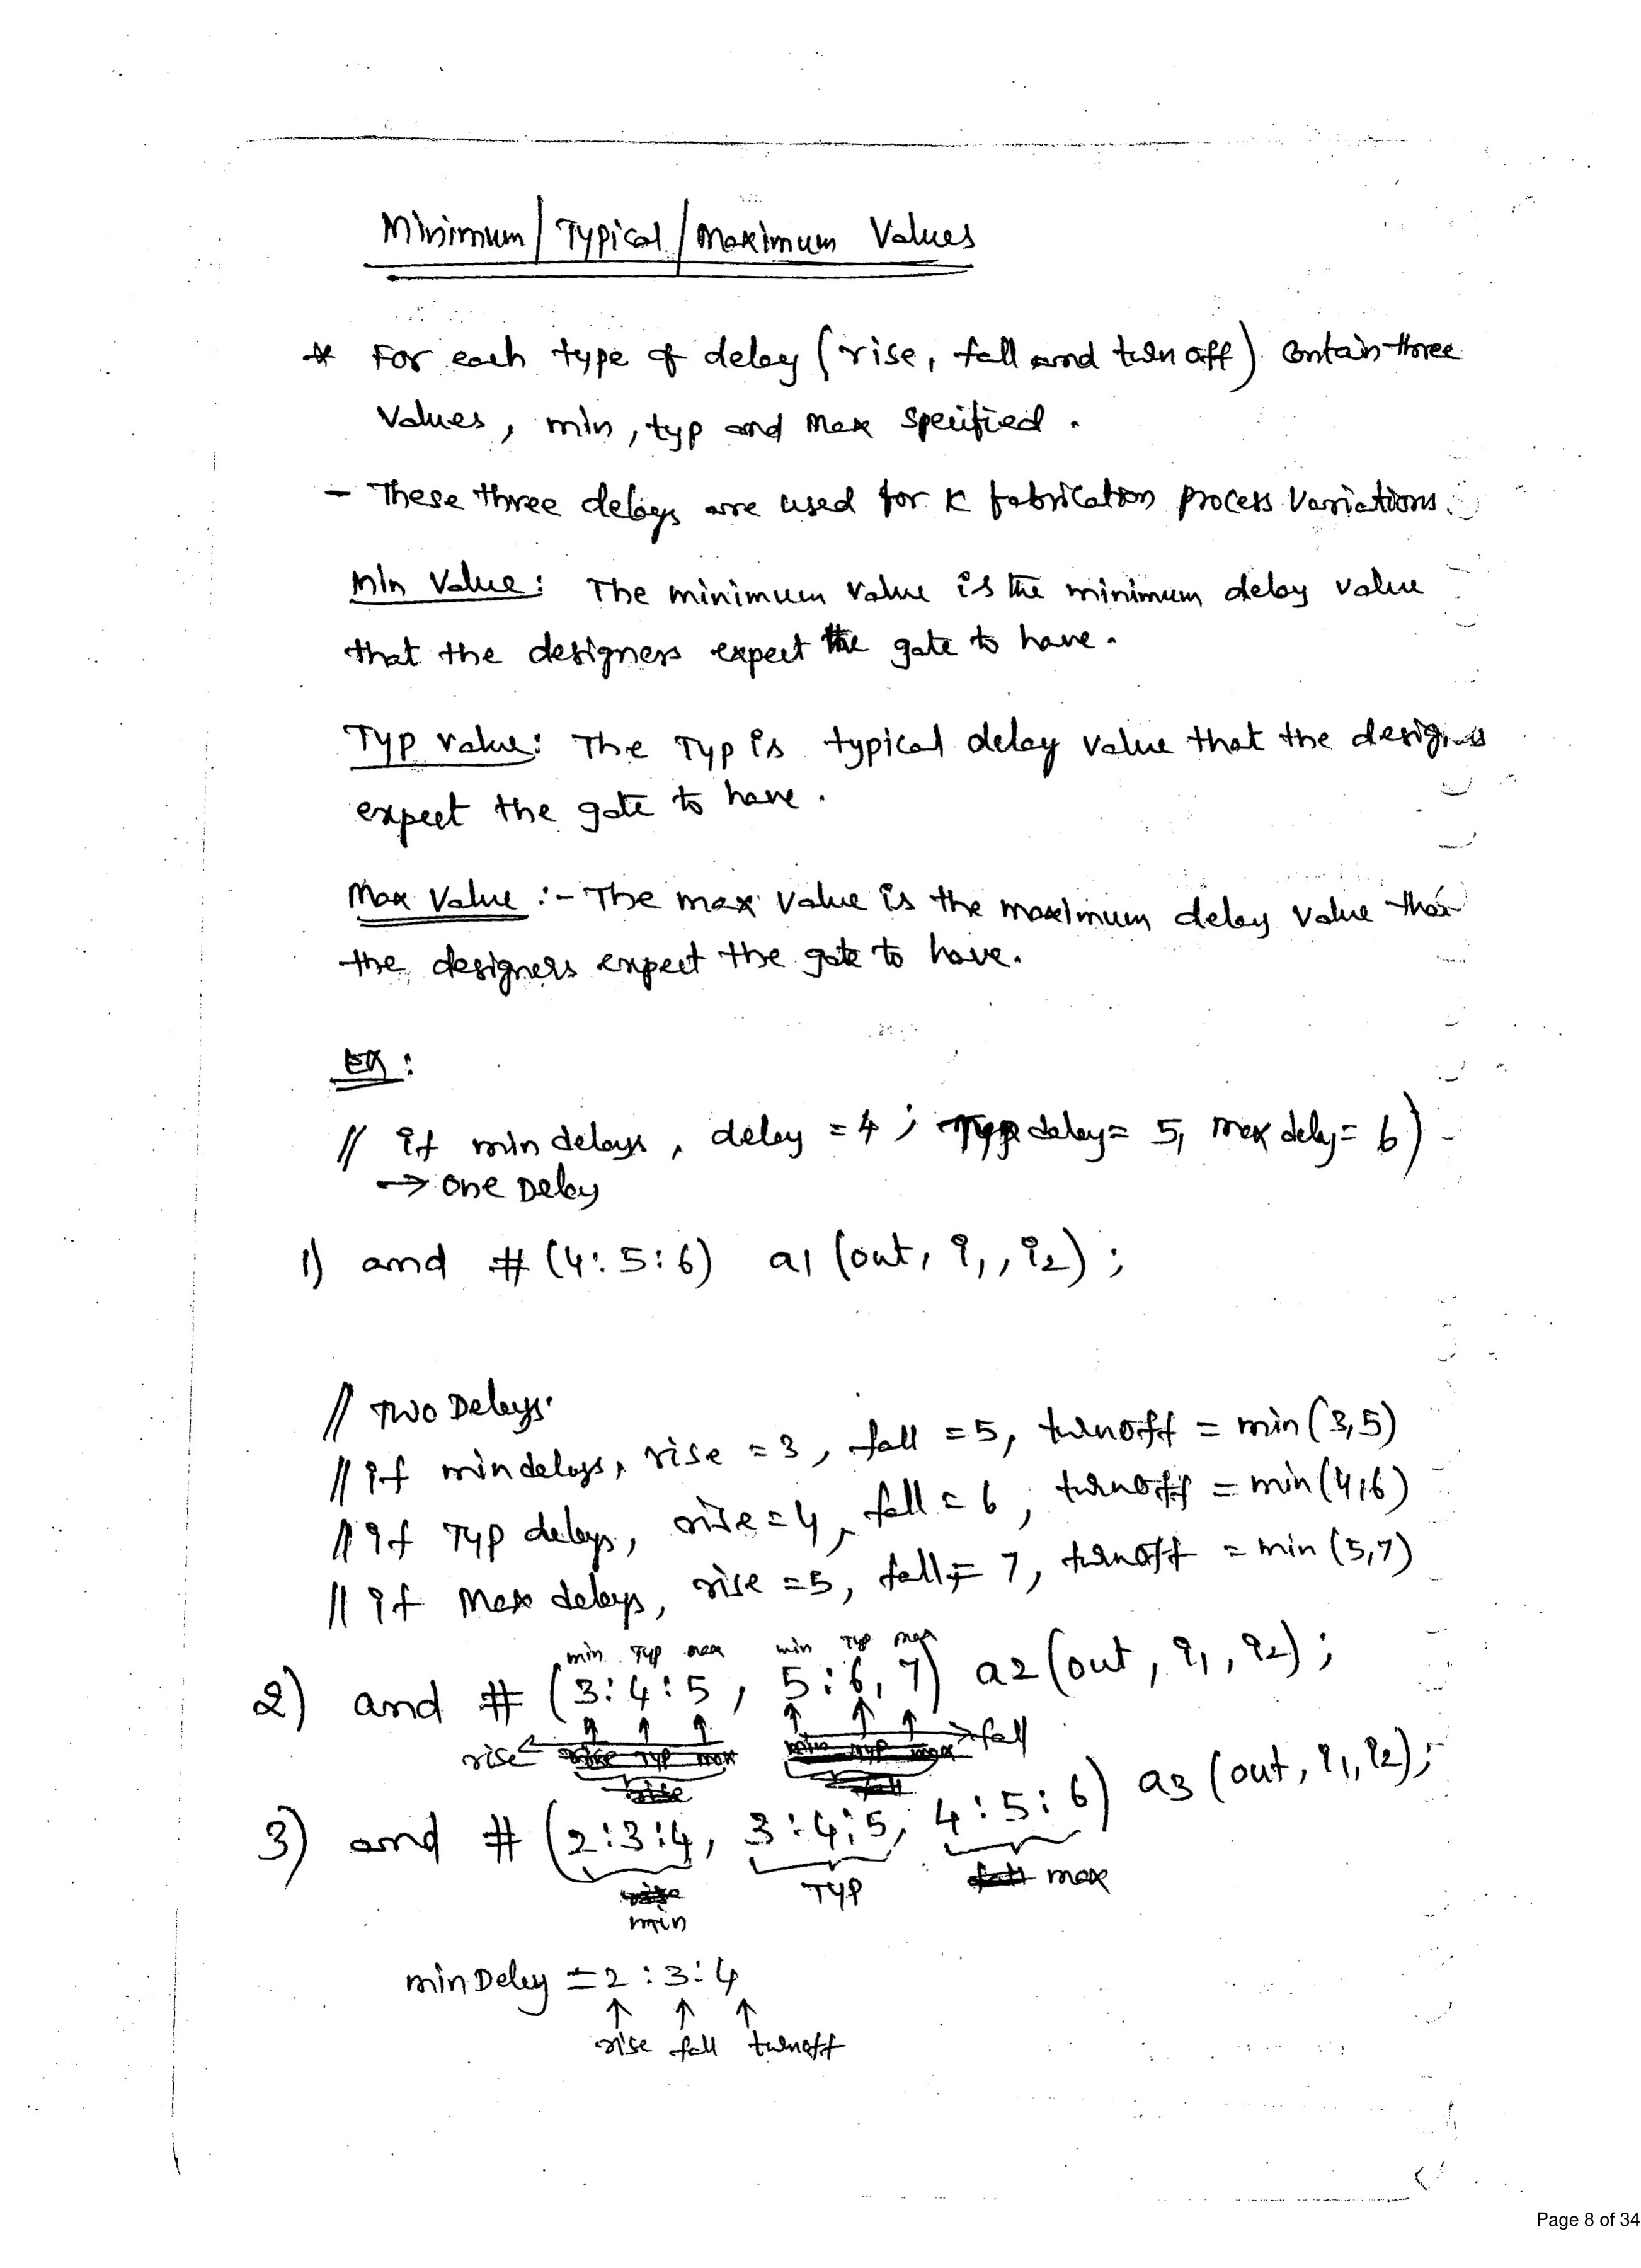 Minimum/Typical/Maximum Values
* For each type of delay (rise, fall and turn off) Contain three
Values, min, typ and Max Specified.
- These three delays are used for K fabrication process Variations.
Min Value: The minimum value is the minimum delay value
that the designers expect the gate to have.
Typ value: The Typ is typical delay value that the designers
expect the gate to have.
Max Value :- The max value is the maximum delay value that
the designers expect the gate to have.
EX:
// if min delays, delay = 4; Typ delay= 5, max dely= 6)
→ one Delay
1) and # (4:5:6) a1 (out, i1, i2);
// Two Delays.
// if min delays, rise = 3, fall = 5, turnoff = min(3,5)
// if Typ delays, rise = 4, fall = 6, turnoff = min(4,6)
// if Max delays, rise = 5, fall = 7, turnoff = min(5,7)
min Typ max min Typ max
2) and # (3:4:5, 5:6,7) a2 (out, i1, i2);
rise ← rise Typ max min Typ max → fall
rise fall
3) and # (2:3:4, 3:4:5, 4:5:6) a3 (out, i1, i2);
rise Typ fall max
min
min Delay = 2:3:4
rise fall turnoff
Page 8 of 34